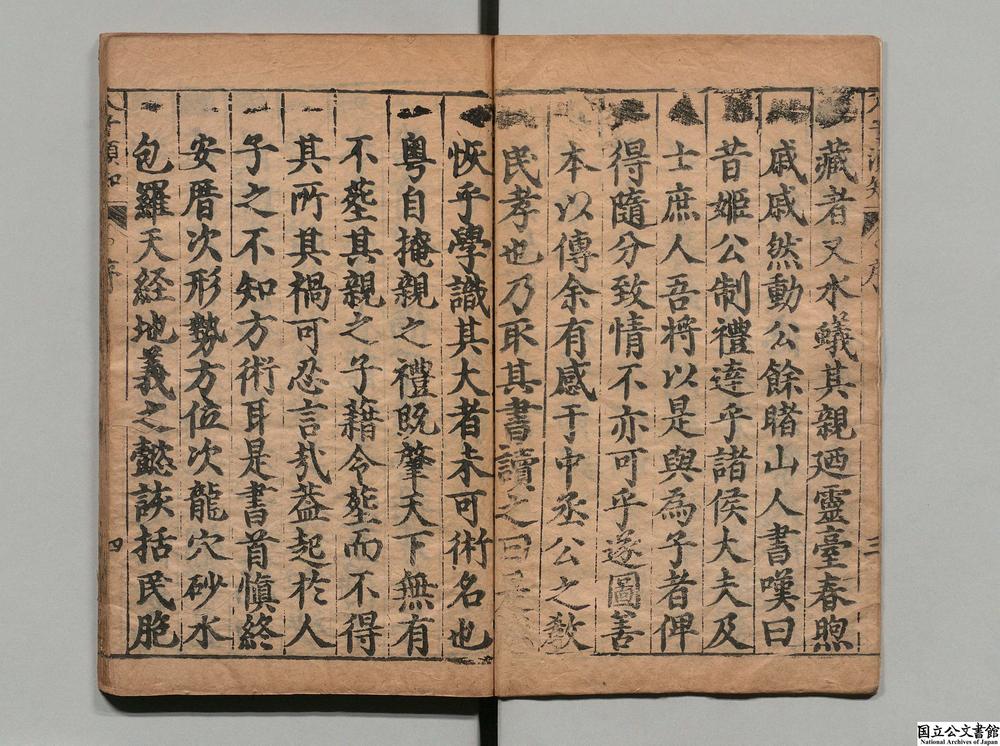 藏者又水蟻其親廼靈臺春煦
戚戚然動公餘睹山人書嘆曰
昔姬公制禮達乎諸侯大夫及
士庶人吾將以是與為子者俾
得隨分致情不亦可乎遂圖善
本以傳余有感于中丞公之教
民孝也乃取其書讀之曰
恢乎學識其大者未可術名也
粵自掩親之禮既肇天下無有
不塟其親之子籍令塟而不得
其所其禍可忍言哉葢起於人
子之不知方術耳是書首慎終
安厝次形勢方位次龍穴砂水
包羅天経地義之懿詼括民脆
三
四
国立公文書館
National Archives of Japan